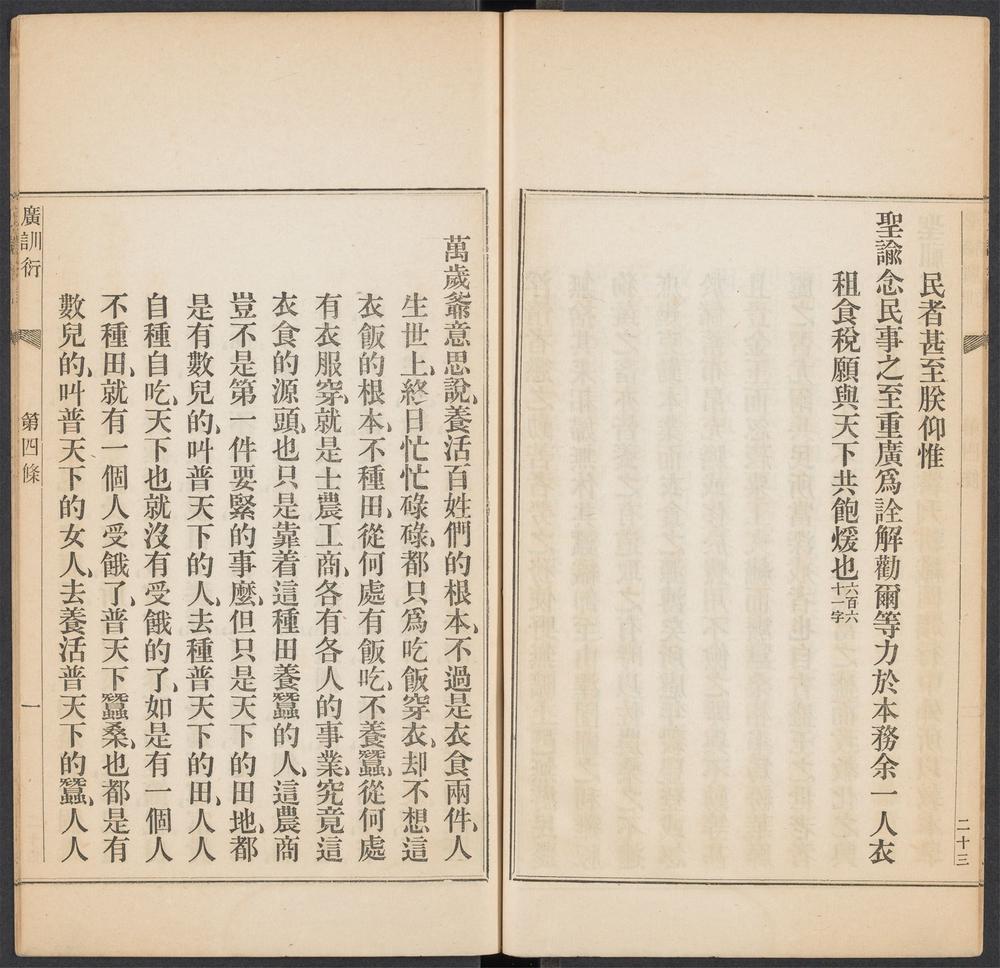 民者甚至朕仰惟
聖諭念民事之至重廣爲詮解勸爾等力於本務余一人衣
租食稅願與天下共飽煖也六百六十一字
二十三
萬歲爺意思說、養活百姓們的根本、不過是衣食兩件、人
生世上、終日忙忙碌碌、都只爲吃飯穿衣、却不想這
衣飯的根本、不種田、從何處有飯吃、不養蠶、從何處
有衣服穿、就是士農工商、各有各人的事業、究竟這
衣食的源頭、也只是靠着這種田養蠶的人、這農商
豈不是第一件要緊的事麼、但只是天下的田地、都
是有數兒的、叫普天下的人、去種普天下的田、人人
自種自吃、天下也就沒有受餓的了、如是有一個人
不種田、就有一個人受餓了、普天下蠶桑、也都是有
數兒的、叫普天下的女人、去養活普天下的蠶、人人
廣訓衍 第四條 一